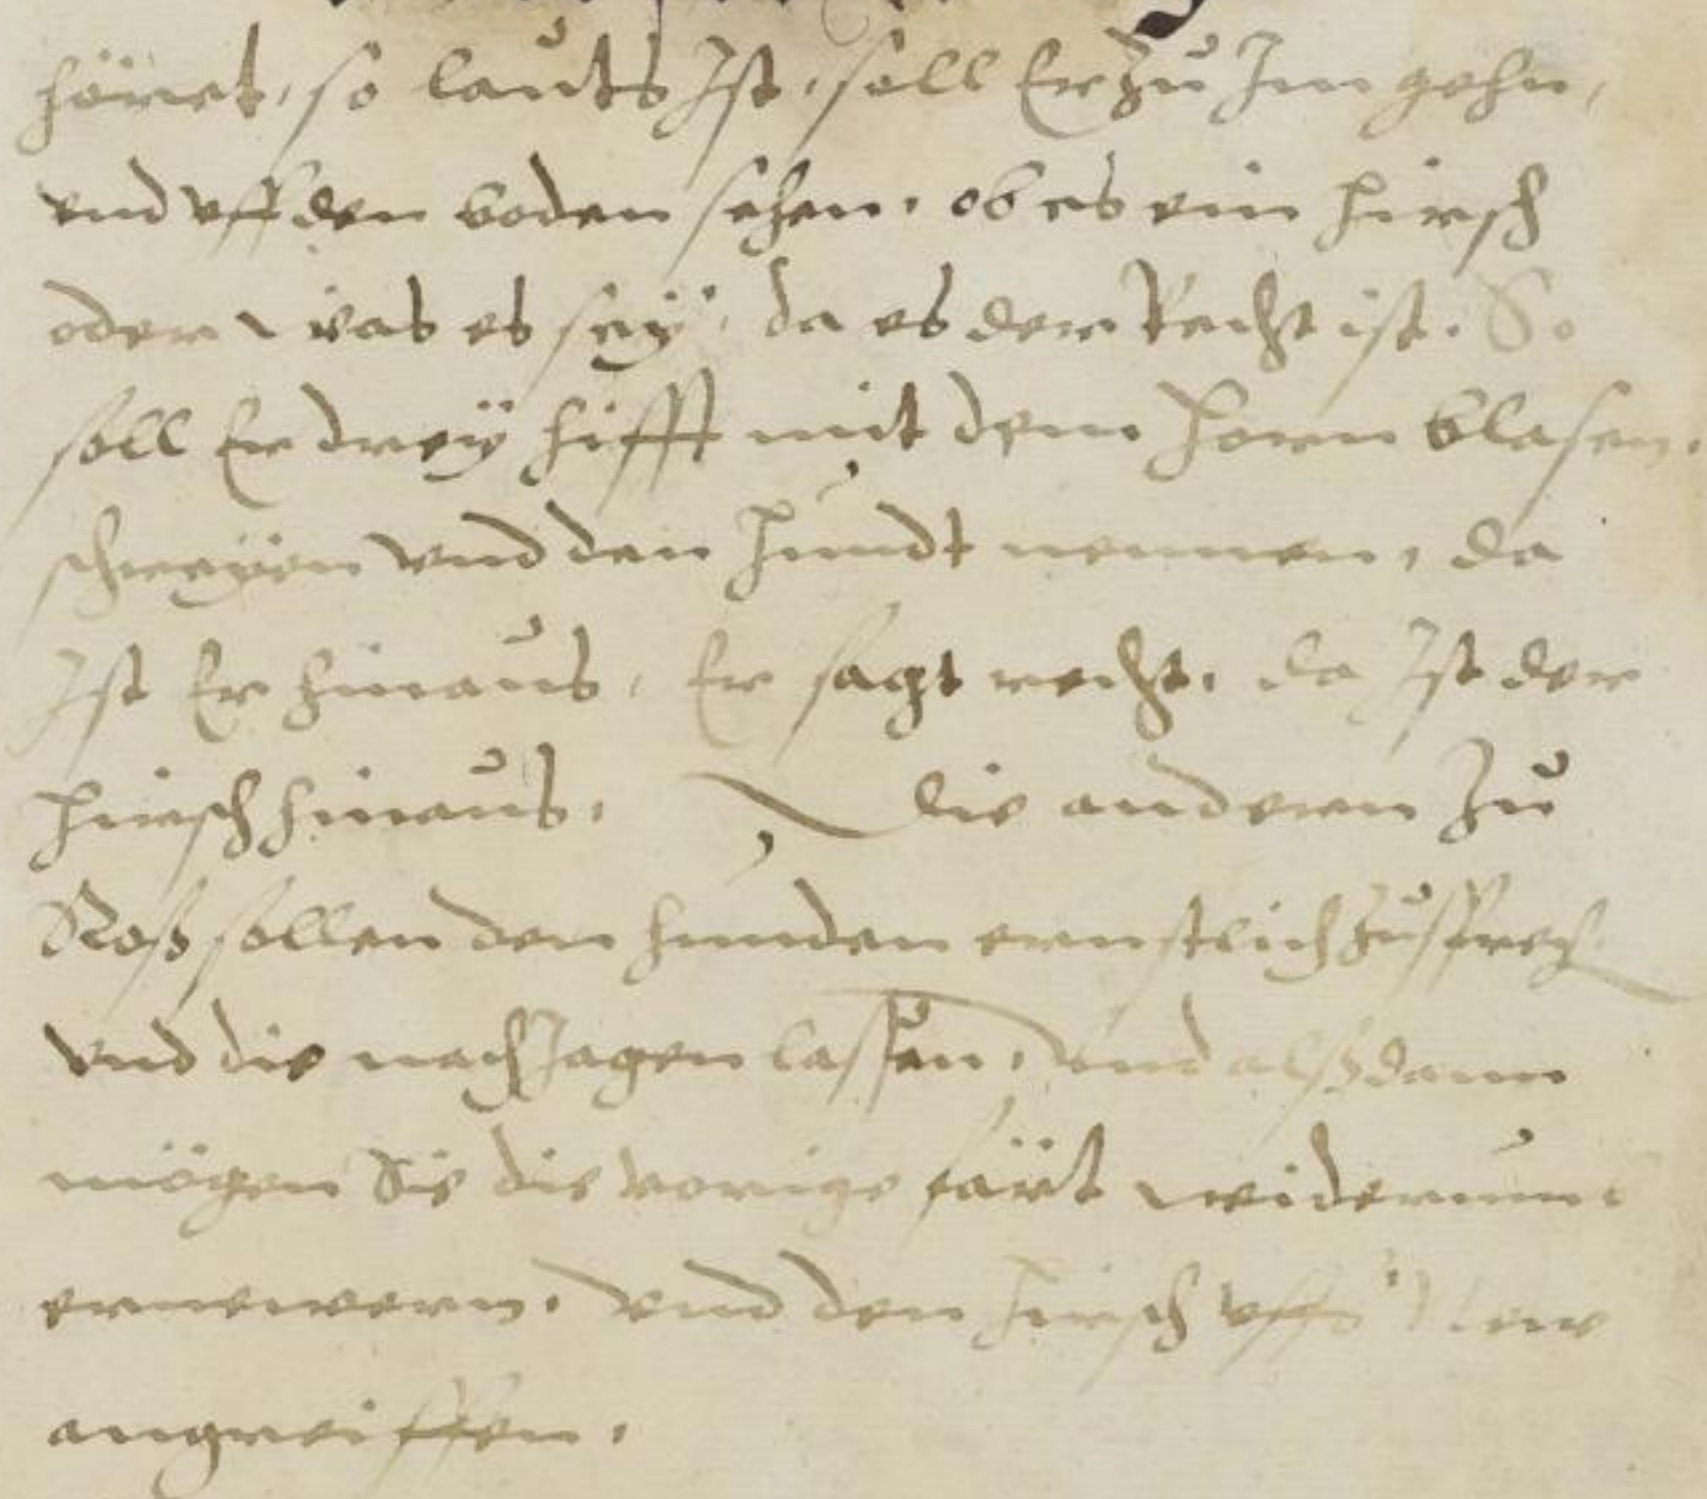 höret, so lauts Ist, soll Er zu Im gehn,
vnd vff den boden sehen, ob es ein Hirsch
oder was es seÿ, da es der Recht ist. So
soll Er dreÿ hifft mit dem Horn blasen,
schreÿen vnd den Hundt nennen, da
Ist Er hinaus, Er sagt recht, da Ist der
Hirsch hinaus, die andern zu
Roß sollen den hunden ernstlich zusprech
vnd die nach Jagen lassen, vnd alßdann
mögen Sie die vorige färt widerumb
ernewern, vnd den Hirsch vffs new
angreiffen,